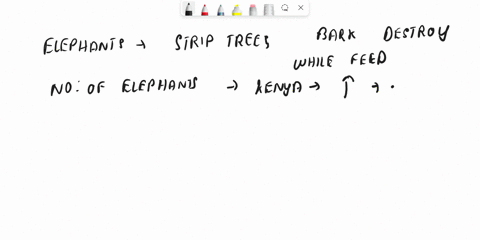 ELEPHANTS → STRIP TREES BARK DESTROY
WHILE FEED
NO: OF ELEPHANTS → KENYA → ↑ → .